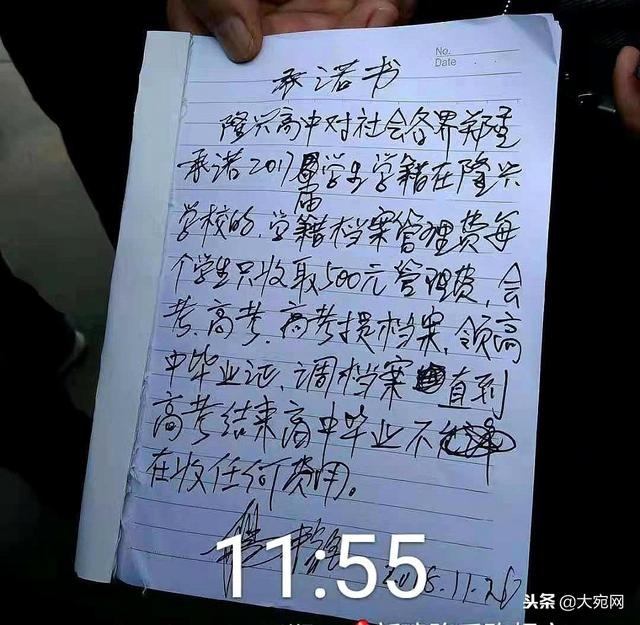 No.
Date
承诺书
隆兴高中对社会各界郑重
承诺2017届学生学籍在隆兴
学校的,学籍档案管理费每
个学生只收取500元管理费,会
考,高考,高考提档案,领高
中毕业证、调档案直到
高考结束高中毕业不
在收任何费用。
11:55
头条 @大宛网